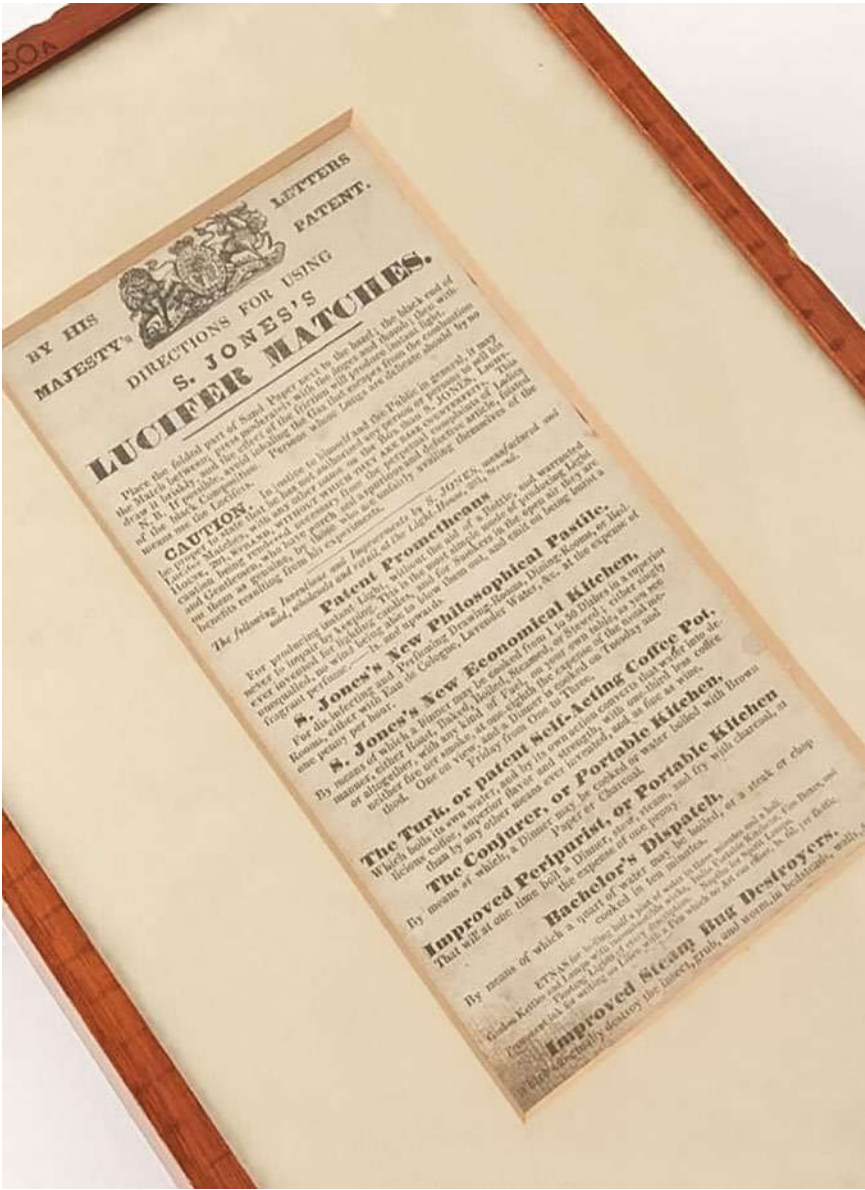 50A
BY HIS
MAJESTY's
LETTERS
PATENT.
DIRECTIONS FOR USING
S. JONES'S
LUCIFER MATCHES.
Place the folded part of Sand Paper next to the hand; the black end of
the Match between; press moderately with the fingers and thumb; then with-
draw it briskly, and the effect of the friction will produce instant light.
N. B. If possible, avoid inhaling the Gas that escapes from the combustion
of the black Composition. Persons whose Lungs are delicate should by no
means use the Lucifers.
CAUTION. In justice to himself and the Public in general, it may
be proper to state that he has not authorised any person or persons to sell his
Lucifer Matches, with any other name on the Box than S. JONES, LIGHT-
HOUSE, 201, STRAND, WITHOUT WHICH THEY ARE BASE COUNTERFEITS. This
caution being rendered necessary from the perpetual complaints of Ladies
and Gentlemen, who have purch a spurious and defective article, foisted
on them as genuine, by those who are unfairly availing themselves of the
benefits resulting from his experiments.
The following Inventions and Improvements by S. JONES, manufactured and
sold, wholesale and retail, at the Light-House, 201, Strand.
Patent Prometheans
For producing instant Light, without the aid of a Bottle, and warranted
never to impair by keeping. This is the most simple mode of producing Light
ever invented for lighting candles, and for Smokers in the open air they are
unequalled, no wind being able to blow them out, and emit on being burnt a
fragrant perfume.—1s. and upwards.
S. Jones's New Philosophical Pastile,
For disinfecting and Perfuming Drawing-Rooms, Dining-Rooms, or Bed-
Rooms, either with Eau de Cologne, Lavender Water, &c., at the expense of
one penny per hour.
S. Jones's New Economical Kitchen,
By means of which a Dinner may be cooked from 1 to 50 Dishes in a superior
manner, either Roast, Baked, Boiled, Steamed, or Stewed, either singly
or altogether, with any kind of Fuel, on your own table, as you see
neither fire nor smoke, at one eighth the expense of the usual me-
thod. One on view, and a Dinner is cooked on Tuesday and
Friday from One to Three.
The Turk, or patent Self-Acting Coffee Pot,
Which boils its own water, and by its own action converts that water into de-
licious coffee, superior flavor and strength, with one-third less coffee
than by any other means ever invented, and as fine as wine.
The Conjurer, or Portable Kitchen,
By means of which, a Dinner may be cooked or water boiled with Brown
Paper or Charcoal.
Improved Peripurist, or Portable Kitchen
That will at one time boil a Dinner, stew, steam, and fry with charcoal, at
the expense of one penny.
Bachelor's Dispatch,
By means of which a quart of water may be boiled, or a steak or chop
cooked in ten minutes.
ETNAS for boiling half a pint of water in three minutes and a half.
Kettles and Lamps with incombustible wicks, Portable Kitchen, Fire Boxes, and
Floating Lights of every description. Naptha for Lamps.
Permanent Ink for writing on Linen with a Pen which no Art can effect, 1s. 6d. per Bottle.
Improved Steam Bug Destroyers,
Which effectually destroy the insect, grub, and worm, in bedsteads,